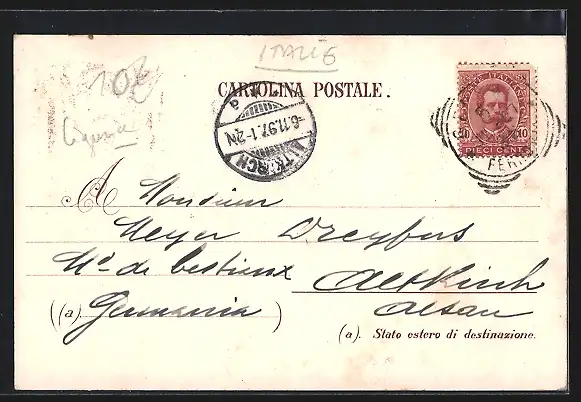 ITALIE
10€
CARTOLINA POSTALE.
ALTKIRCH
6.11.97.1-2N
10 10
DIECI CENT.
FERR
A Monsieur
Meyer Dreyfus
Md. de bestiaux Altkirch
(a) Germania ) Alsace
(a). Stato estero di destinazione.